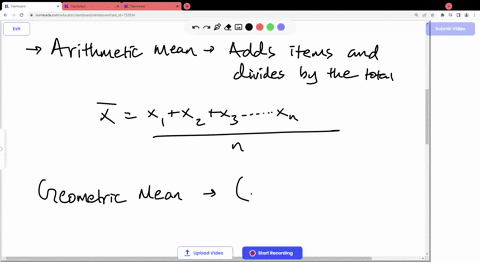 Exit
Submit Video
→ Arithmetic mean → Adds items and
divides by the total
x̄ = x₁ + x₂ + x₃ ------ xₙ
n
Geometric Mean → (.
Upload Video
Start Recording